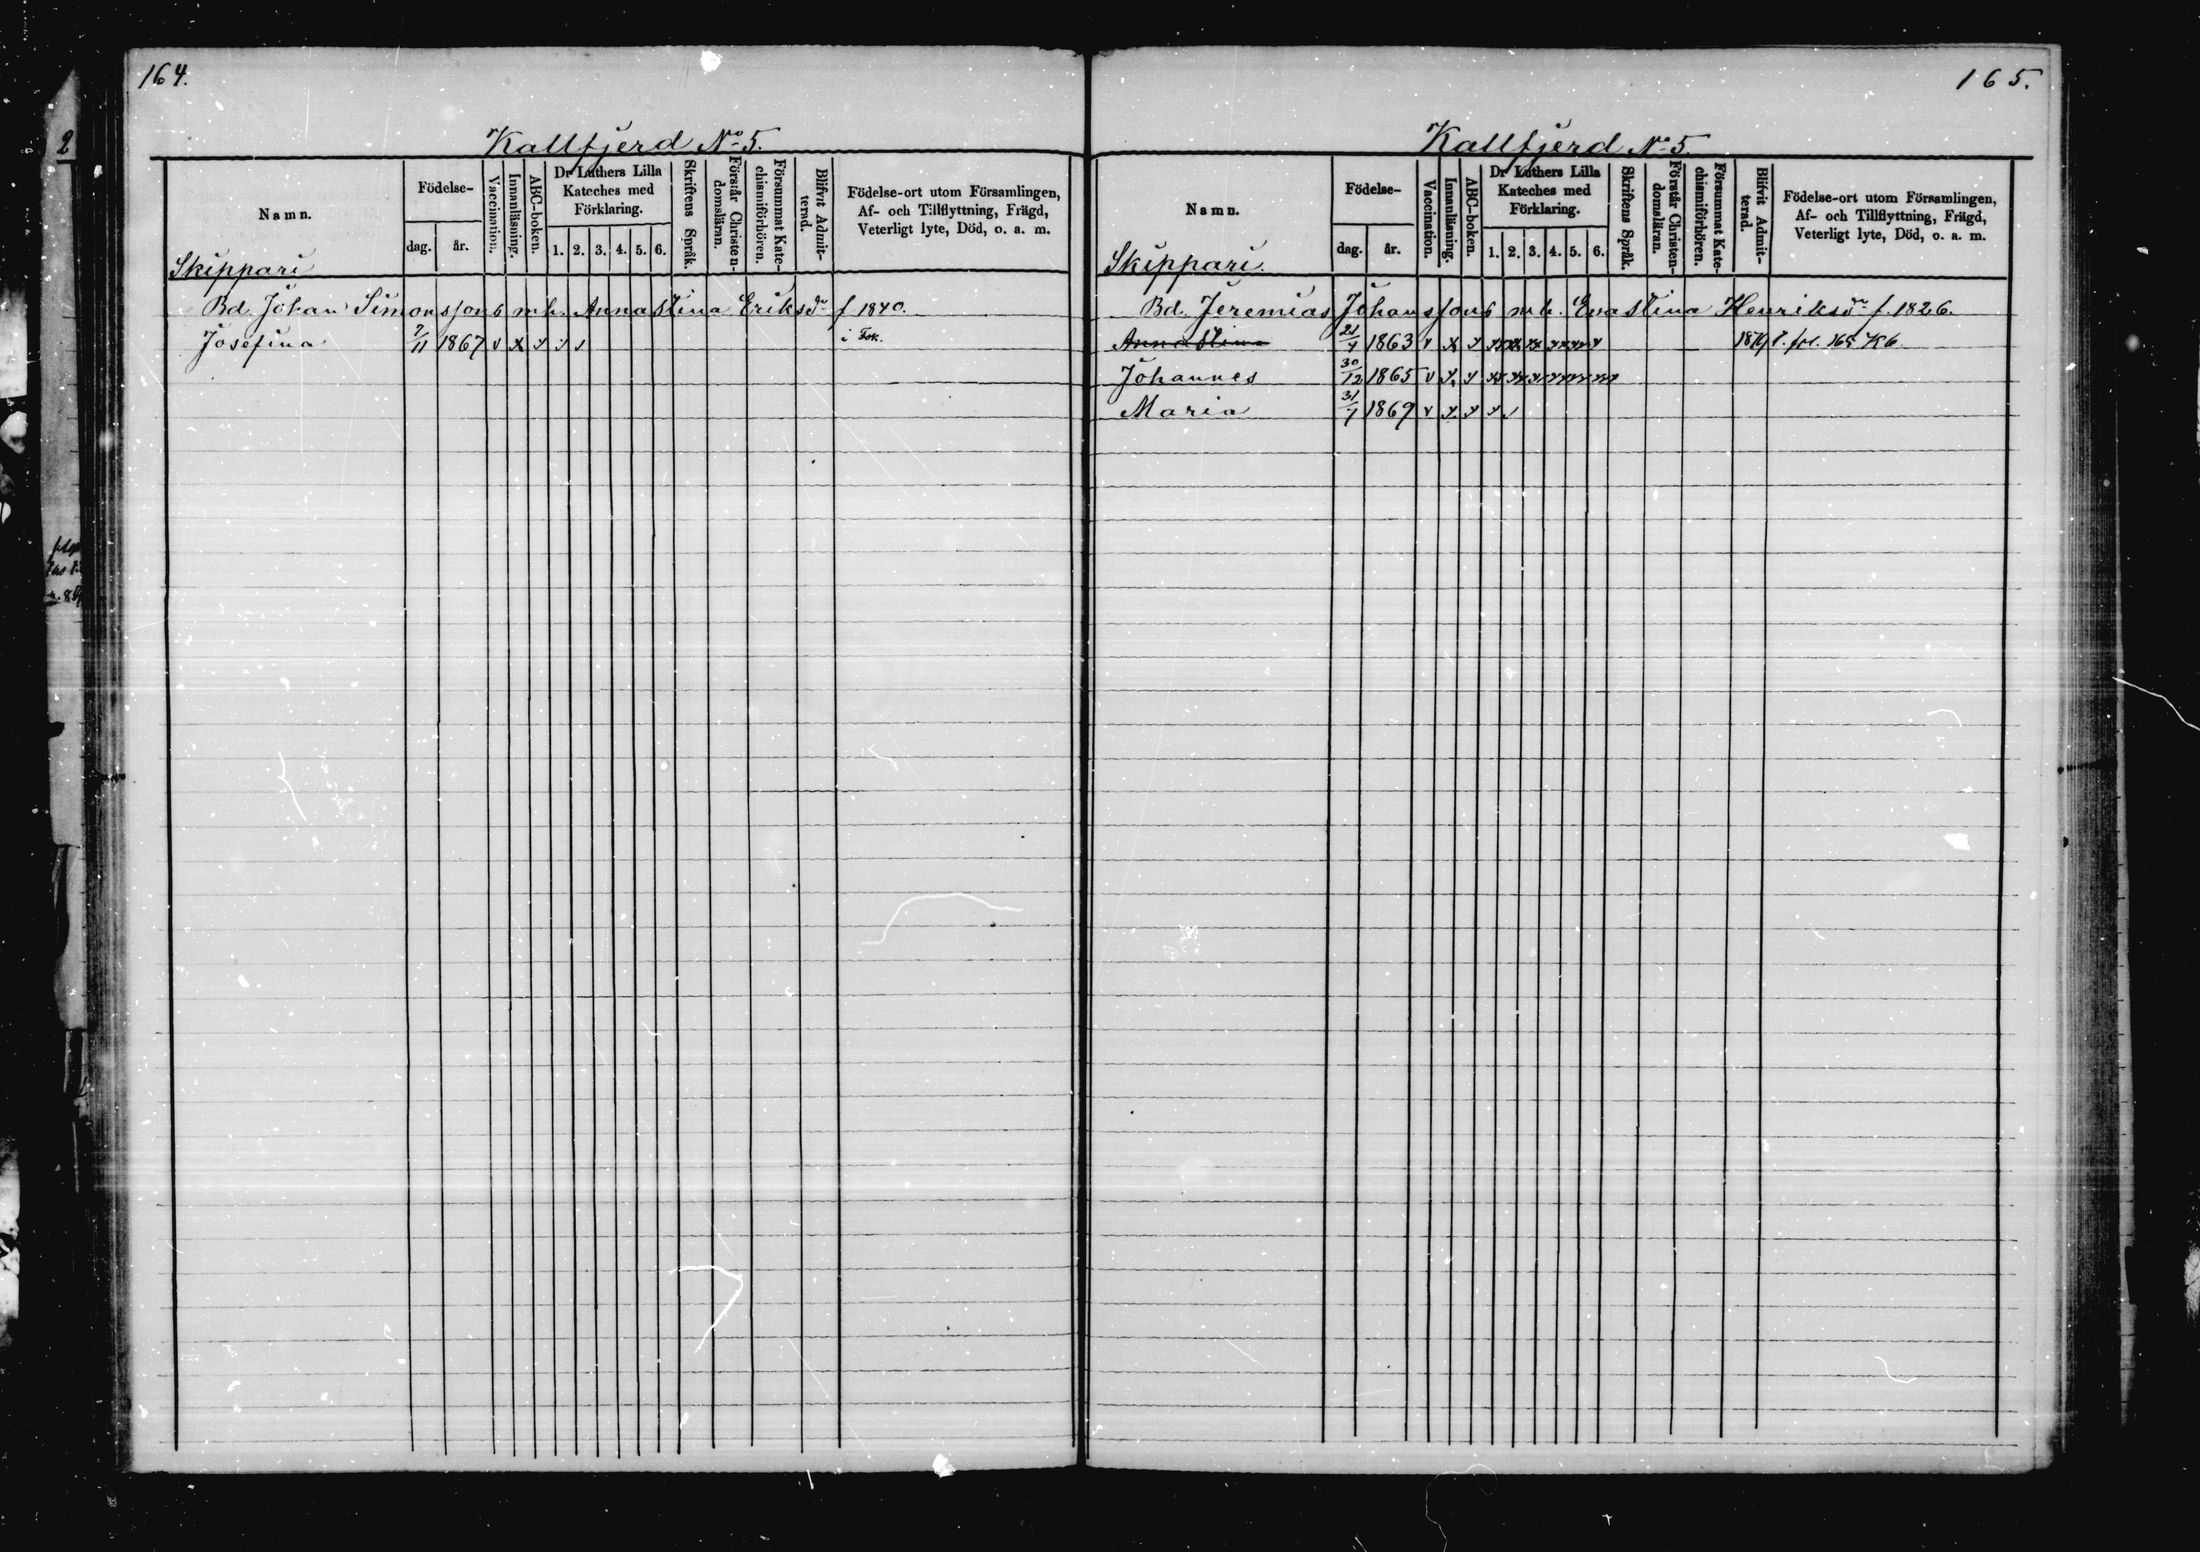 164.
Kallfjerd No 5.
Namn.
Födelse-
dag.
år.
Vaccination.
Innanläsning.
ABC-boken.
Dr Luthers Lilla
Kateches med
Förklaring.
1. 2. 3. 4. 5. 6.
Skriftens Språk.
Förstår Christen-
domsläran.
Försummat Kate-
chismiförhören.
Blifvit Admit-
terad.
Födelse-ort utom Församlingen,
Af- och Tillflyttning, Frägd,
Veterligt lyte, Död, o. a. m.
Skippari
Bd. Johan Simonssons m h. Anna Stina Eriksdr f 1840.
Josefina 7/11 1867 v x
165.
Kallfjerd No 5.
Namn.
Födelse-
dag.
år.
Vaccination.
Innanläsning.
ABC-boken.
Dr Luthers Lilla
Kateches med
Förklaring.
1. 2. 3. 4. 5. 6.
Skriftens Språk.
Förstår Christen-
domsläran.
Försummat Kate-
chismiförhören.
Blifvit Admit-
terad.
Födelse-ort utom Församlingen,
Af- och Tillflyttning, Frägd,
Veterligt lyte, Död, o. a. m.
Skippari.
Bd. Jeremias Johanssons m h. Eva Stina Henriksdr f. 1826.
Anna Stina 21/4 1863 v 165 K6
Johannes 30/12 1865 v
Maria 31/7 1869 v